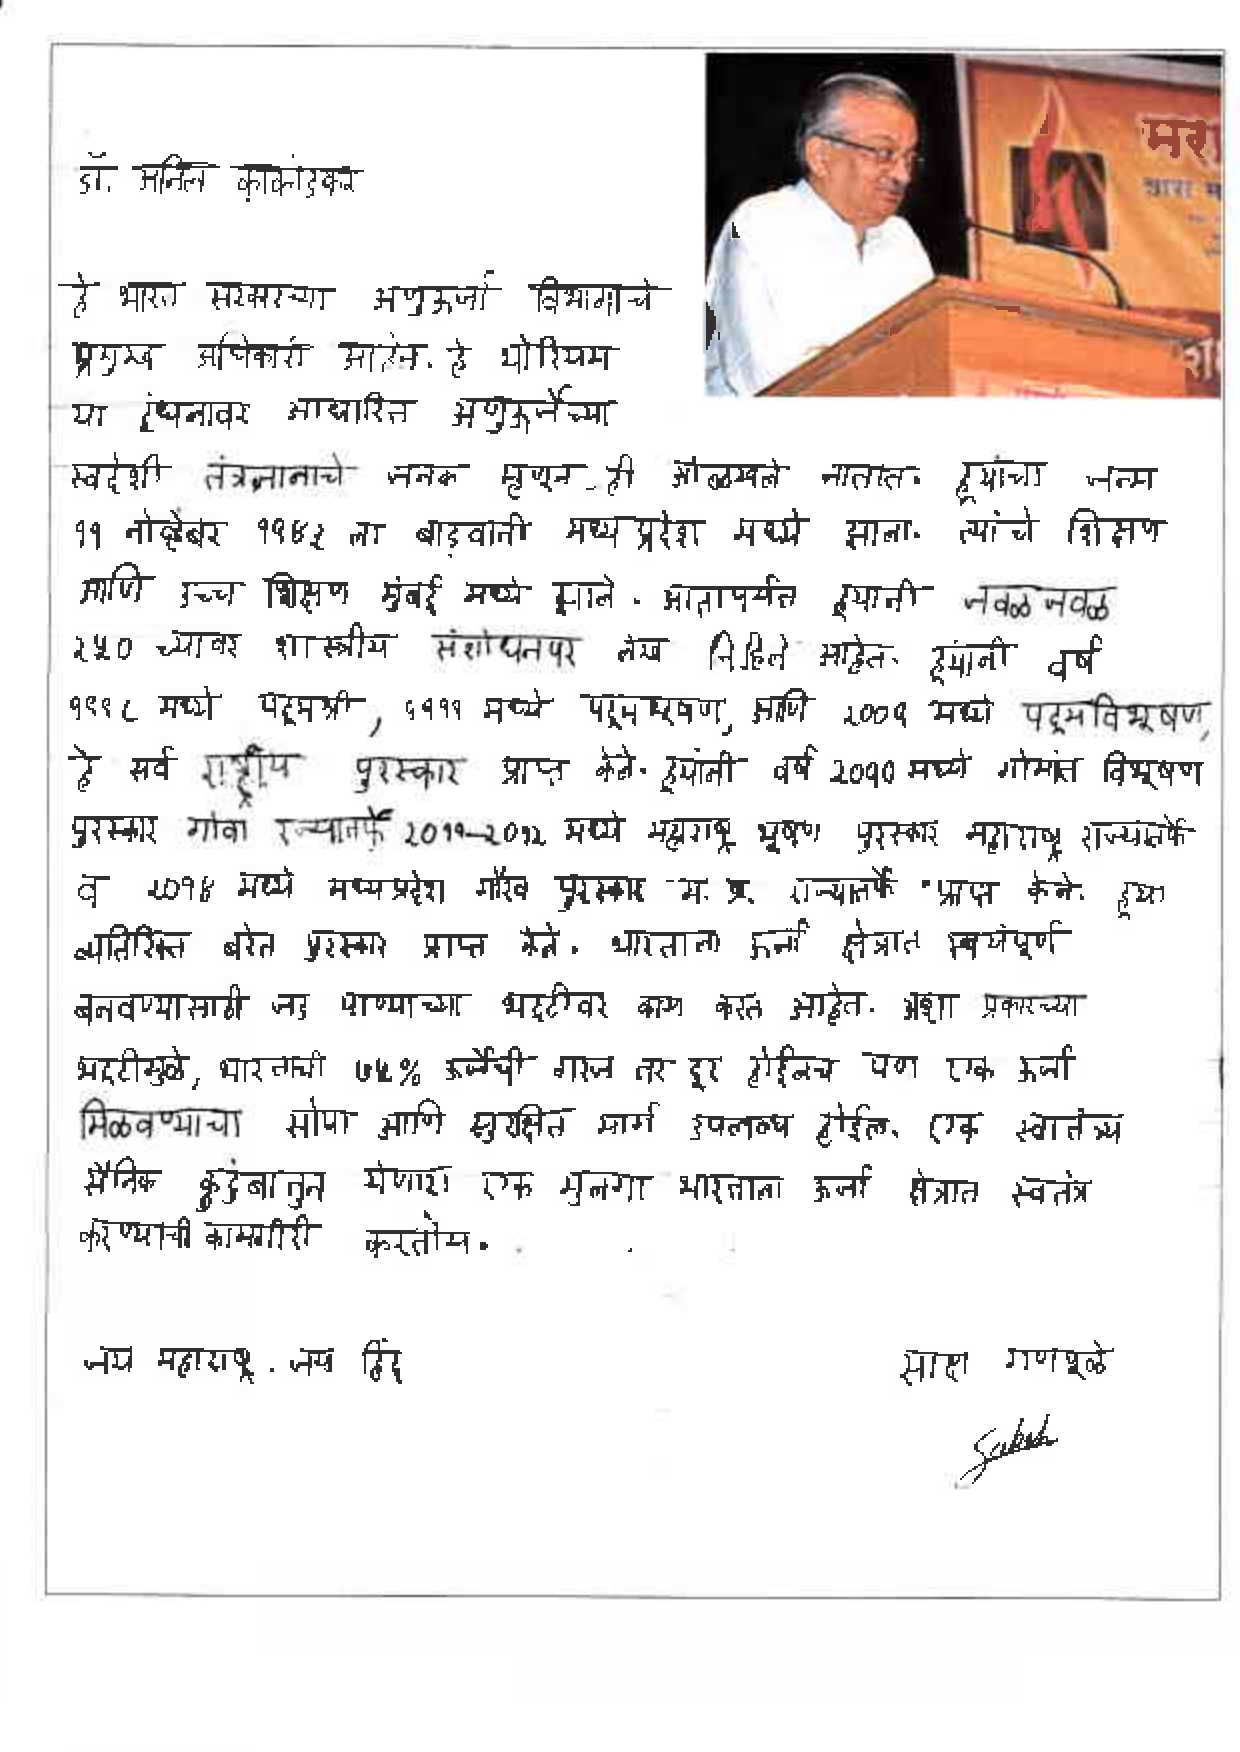 डॉ. अनिल काकोडकर
मरा
शा
हे भारत सरकारच्या अणुऊर्जा विभागाचे
प्रमुख अधिकारी आहेत. हे थोरियम
या इंधनावर आधारित अणुऊर्जेच्या
स्वदेशी तंत्रज्ञानाचे जनक म्हणून ही ओळखले जातात. ह्यांचा जन्म
११ नोव्हेंबर १९४३ ला बाड़वानी मध्यप्रदेश मध्ये झाला. त्यांचे शिक्षण
आणि उच्च शिक्षण मुंबई मध्ये झाले. आतापर्यंत ह्यांनी जवळ जवळ
२५० च्यावर शास्त्रीय संशोधनपर लेख लिहिले आहेत. ह्यांनी वर्ष
१९९८ मध्ये पद्मश्री, मध्ये पद्मभूषण, आणि २००९ मध्ये पद्मविभूषण,
हे सर्व राष्ट्रीय पुरस्कार प्राप्त केले. ह्यांनी वर्ष २०१० मध्ये गोमांत विभूषण
पुरस्कार गोवा राज्यातर्फे २०११-२०१२ मध्ये महाराष्ट्र भूषण पुरस्कार महाराष्ट्र राज्यातर्फे
व २०१४ मध्ये मध्यप्रदेश गौरव पुरस्कार म. प्र. राज्यातर्फे प्राप्त केले. ह्या
व्यतिरिक्त बरेत पुरस्कार प्राप्त केले. भारताला ऊर्जा क्षेत्रात स्वयंपूर्ण
बनवण्यासाठी जड पाण्याच्या भट्टीवर काम करत आहेत. अशा प्रकारच्या
भट्टीमुळे, भारताची ७५% ऊर्जेची गरज तर दूर होईलच पण एक ऊर्जा
मिळवण्याचा सोपा आणि सुरक्षित मार्ग उपलब्ध होईल. एक स्वातंत्र्य
सैनिक कुटुंबातुन येणारा एक मुलगा भारताला ऊर्जा क्षेत्रात स्वतंत्र
करण्याची कामगीरी करतोय.
जय महाराष्ट्र. जय हिंद
गणभूळे